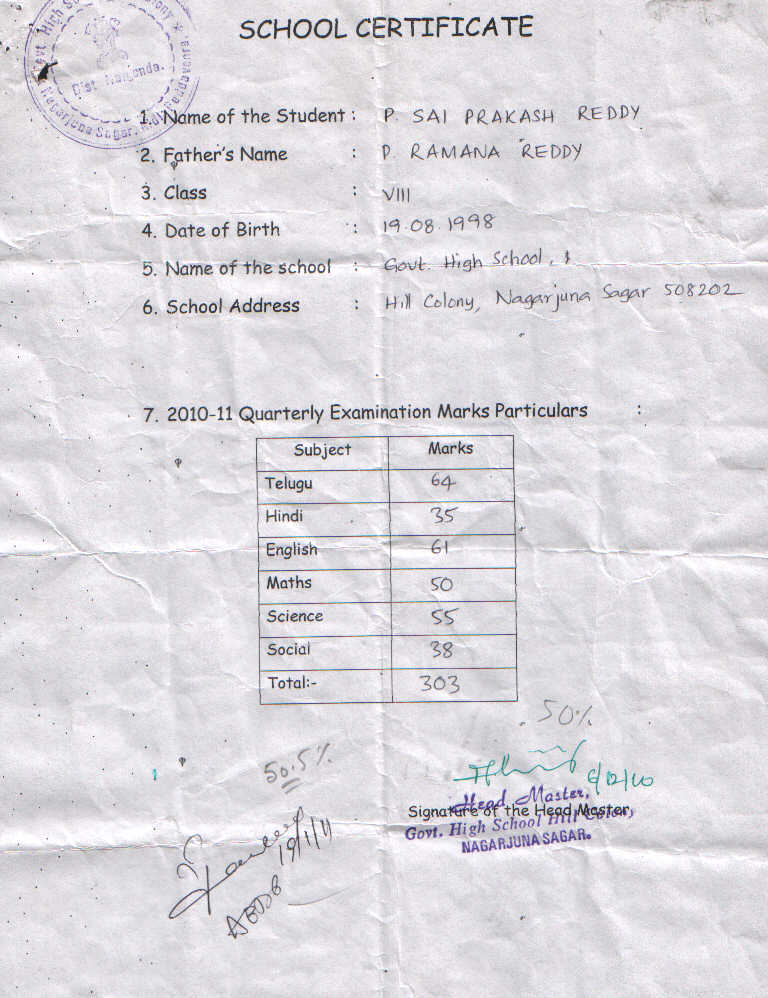 SCHOOL CERTIFICATE
Govt. High
Dist. Nalgonda.
Nagarjuna Sagar.
1. Name of the Student : P. SAI PRAKASH REDDY
2. Father's Name : P. RAMANA REDDY
3. Class : VIII
4. Date of Birth : 19.08.1998
5. Name of the school : Govt. High School,
6. School Address : Hill Colony, Nagarjuna Sagar 508202
7. 2010-11 Quarterly Examination Marks Particulars :
Subject Marks
Telugu 64
Hindi 35
English 61
Maths 50
Science 55
Social 38
Total:- 303
50%
50.5%
6/12/10
Head Master,
Signature of the Head Master
Govt. High School Hill Colony,
NAGARJUNA SAGAR.
19/1/11